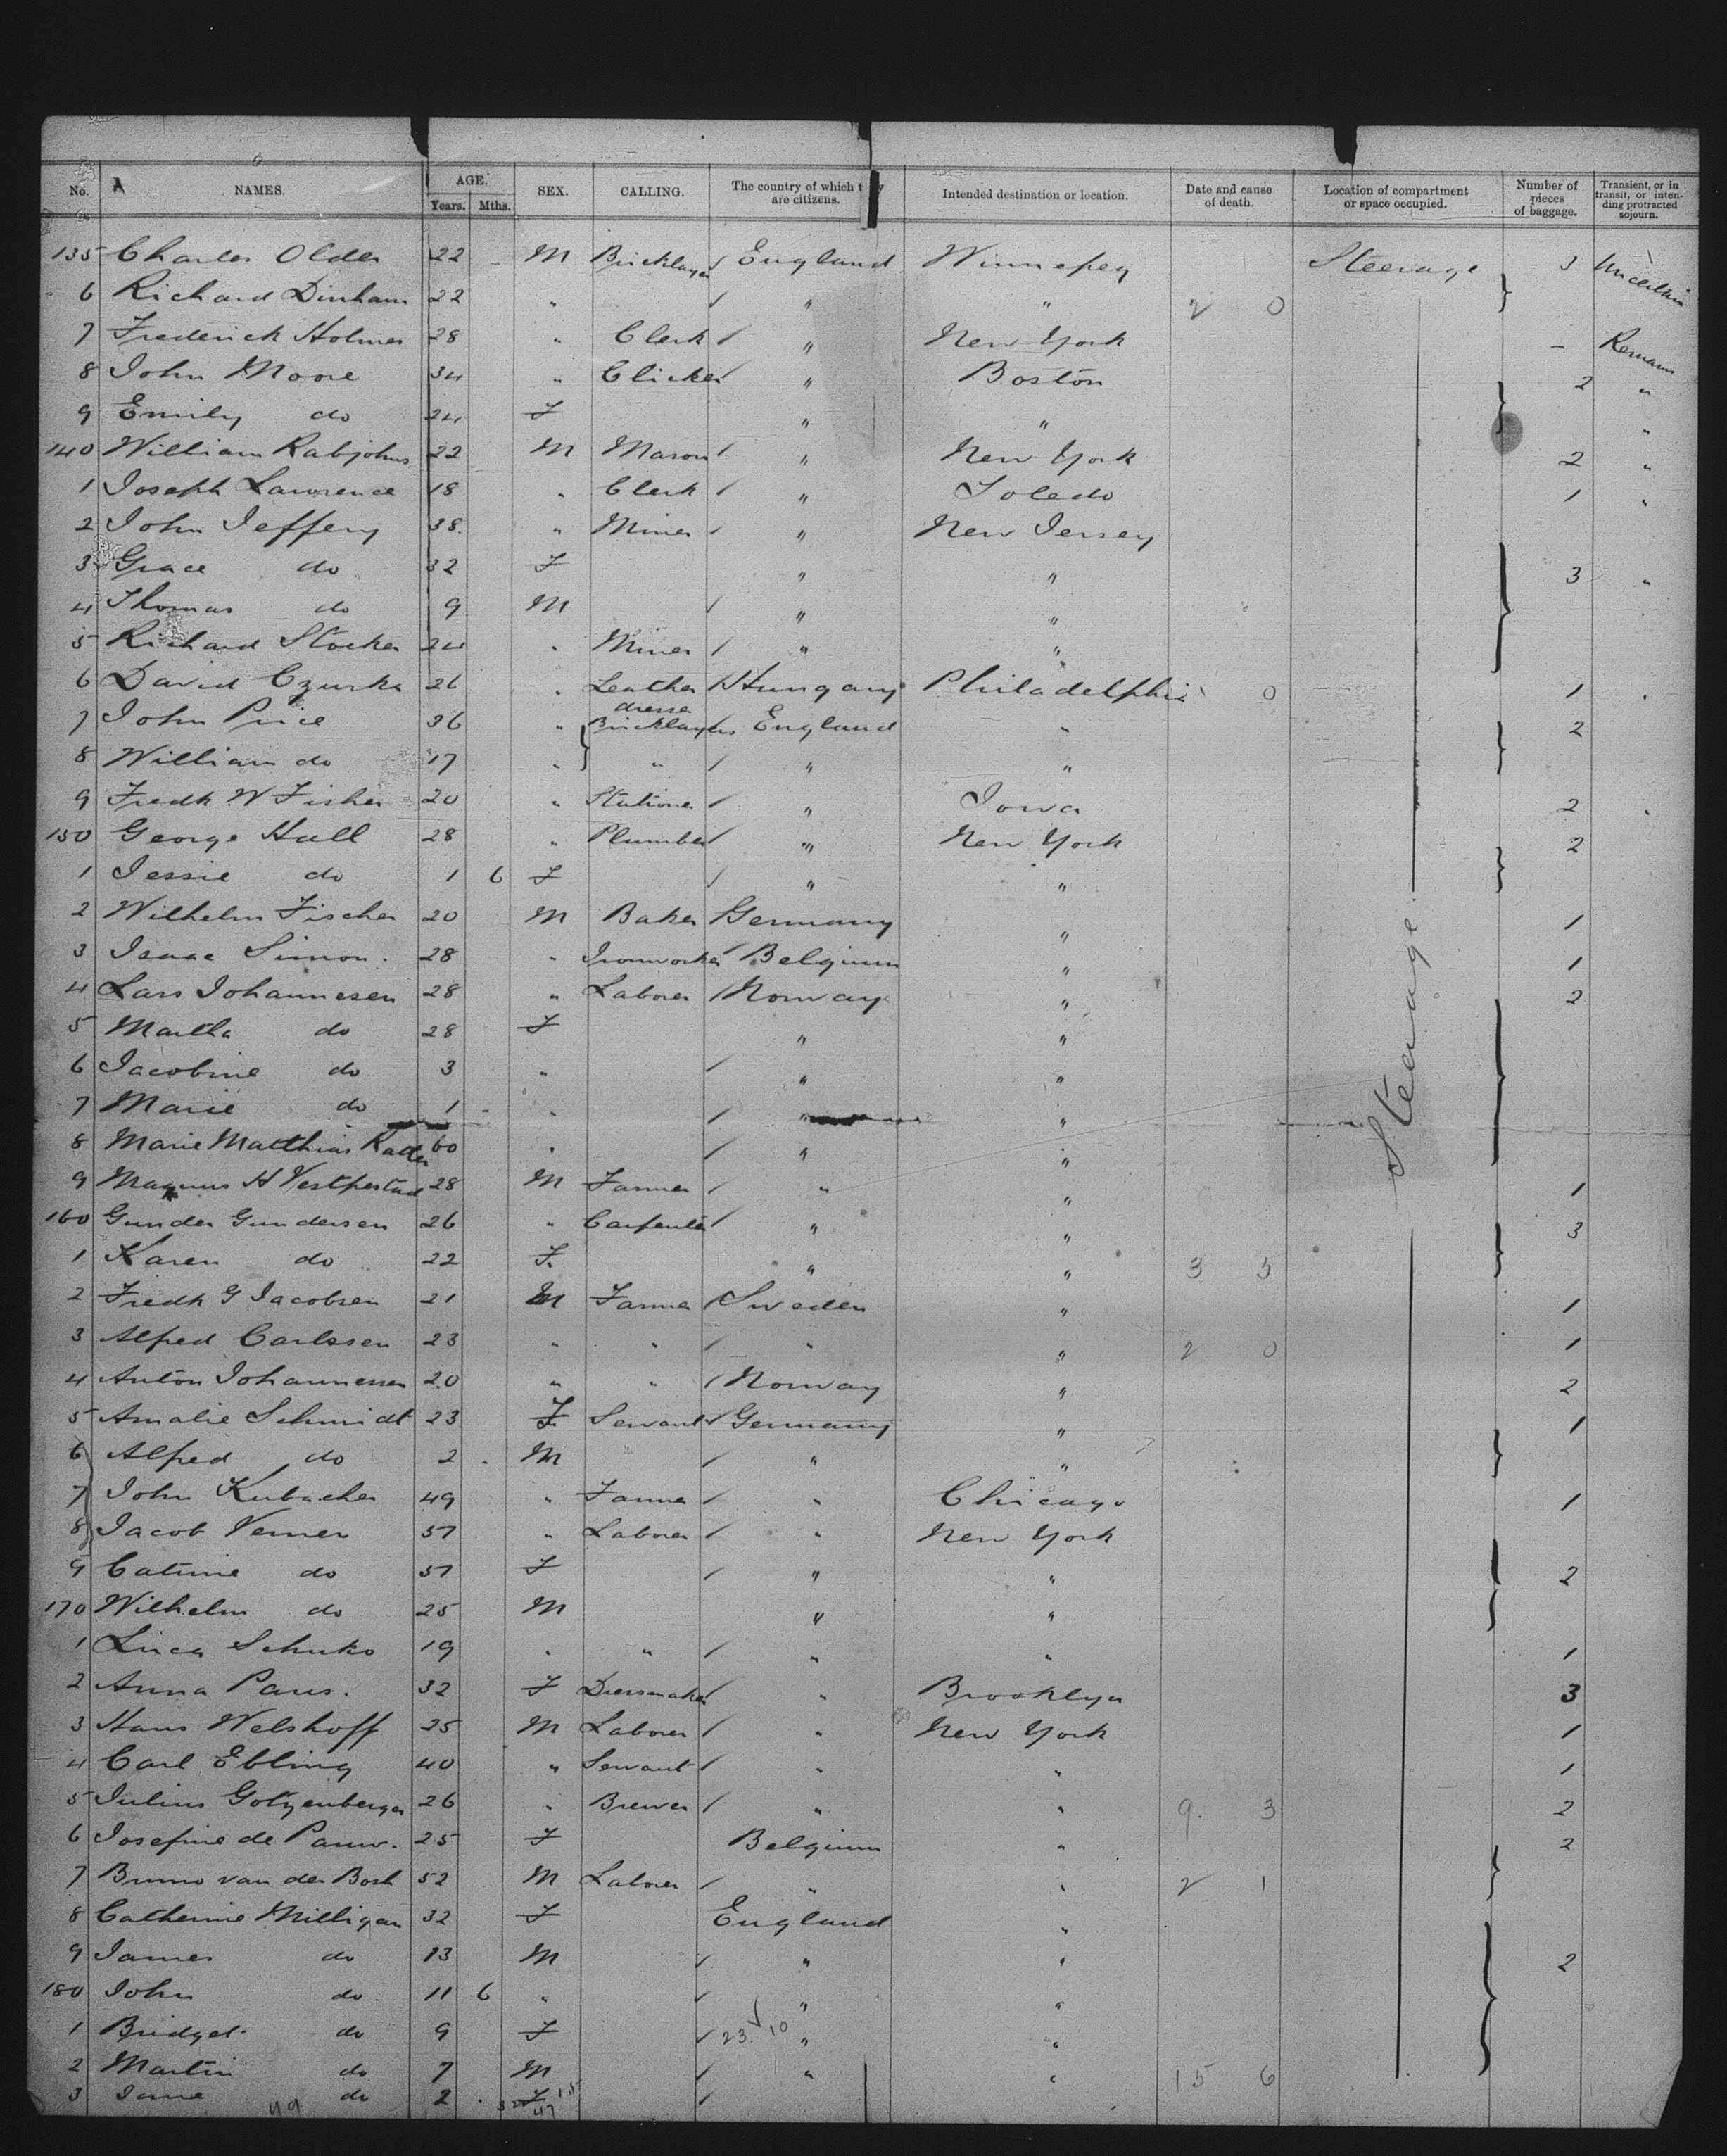 No. NAMES. AGE. Years. Mths. SEX. CALLING. The country of which t y are citizens. Intended destination or location. Date and cause of death. Location of compartment or space occupied. Number of pieces of baggage. Transient, or in transit, or intending protracted sojourn.
135 Charles Older 22 - M Bricklayer England Winnepeg Steerage 3 Uncertain
6 Richard Dinham 22 " " " 2 0
7 Frederick Holmes 28 " Clerk " New York - Remain
8 John Moore 34 " Clicker " Boston 2 "
9 Emily do 24 F " " "
140 William Rabjohns 22 M Mason " New York 2 "
1 Joseph Lawrence 18 " Clerk " Toledo 1 "
2 John Jeffery 38 " Miner " New Jersey
3 Grace do 32 F " " 3 "
4 Thomas do 9 M " "
5 Richard Stocker 24 " Miner " "
6 David Czurka 26 " Leather dresser Hungary Philadelphia 0 1 "
7 John Price 36 " Bricklayers England " 2
8 William do 17 " " " "
9 Fredk W Fisher 20 " Stationer " Iowa 2 "
150 George Hall 28 " Plumber " New York 2
1 Jessie do 1 6 F " "
2 Wilhelm Fischer 20 M Baker Germany " 1
3 Isaac Simon. 28 " Ironworker Belgium " 1
4 Lars Johannesen 28 " Laborer Norway " 2
5 Martha do 28 F " "
6 Jacobine do 3 " " " Steerage
7 Marie do 1 - " " "
8 Marie Matthias 60 " " "
9 Magnus H 28 M Farmer " " 1
160 Gunder Gundersen 26 " Carpenter " " 3
1 Karen do 22 F. " " 3 5
2 Fredk G Jacobsen 21 M Farmer Sweden " 1
3 Alfred Carlssen 23 " " " " 2 0 1
4 Anton Johannessen 20 " " Norway " 2
5 Amalie Schmidt 23 F Servant Germany " 1
6 Alfred do 2 - M " "
7 John Kubacher 49 " Farmer " Chicago 1
8 Jacob Verner 57 " Laborer " New York
9 Catrine do 57 F " " 2
170 Wilhelm do 25 M " "
1 Schuko 19 " " " " 1
2 Anna Paus. 32 F Dressmaker " Brooklyn 3
3 Hans Welshoff 25 M Laborer " New York 1
4 Carl Ebling 40 " Servant " " 1
5 Julius Gotzenberger 26 " Brewer " " 9. 3 2
6 Josefine de Pauw. 25 F Belgium " 2
7 Bruno van der Bosh 52 M Laborer " " 2 1
8 Catherine Milligan 32 F England "
9 James do 13 M " " 2
180 John do 11 6 " " "
1 Bridget do 9 F 23 10 " "
2 Martin do 7 M " " 15 6
3 Jane do 2 - F
49 47 15